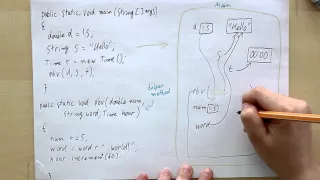 public static void main (String[] args)
{
double d = 1.5;
String s = "Hello";
Time t = new Time();
pbv (d, s, t);
}
helper method
public static void pbv (double num,
String word, Time hour)
{
num += 5;
word = word + " world!";
hour.increment(60);
Main
d 1.5
"Hello"
s
00:00
t
pbv
num 1.5
word